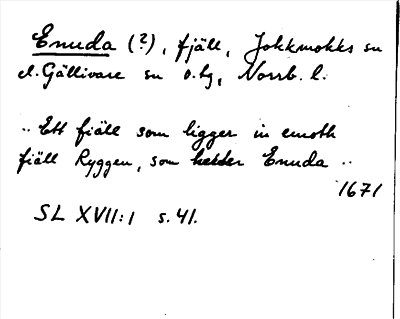 Enuda (?), fjäll, Jokkmokks sn
el. Gällivare sn o. lg, Norrb. l.
.. Ett fiäll som ligger in emoth
fiäll Ryggen, som heter Enuda ..
1671
SL XVII:1 s. 41.